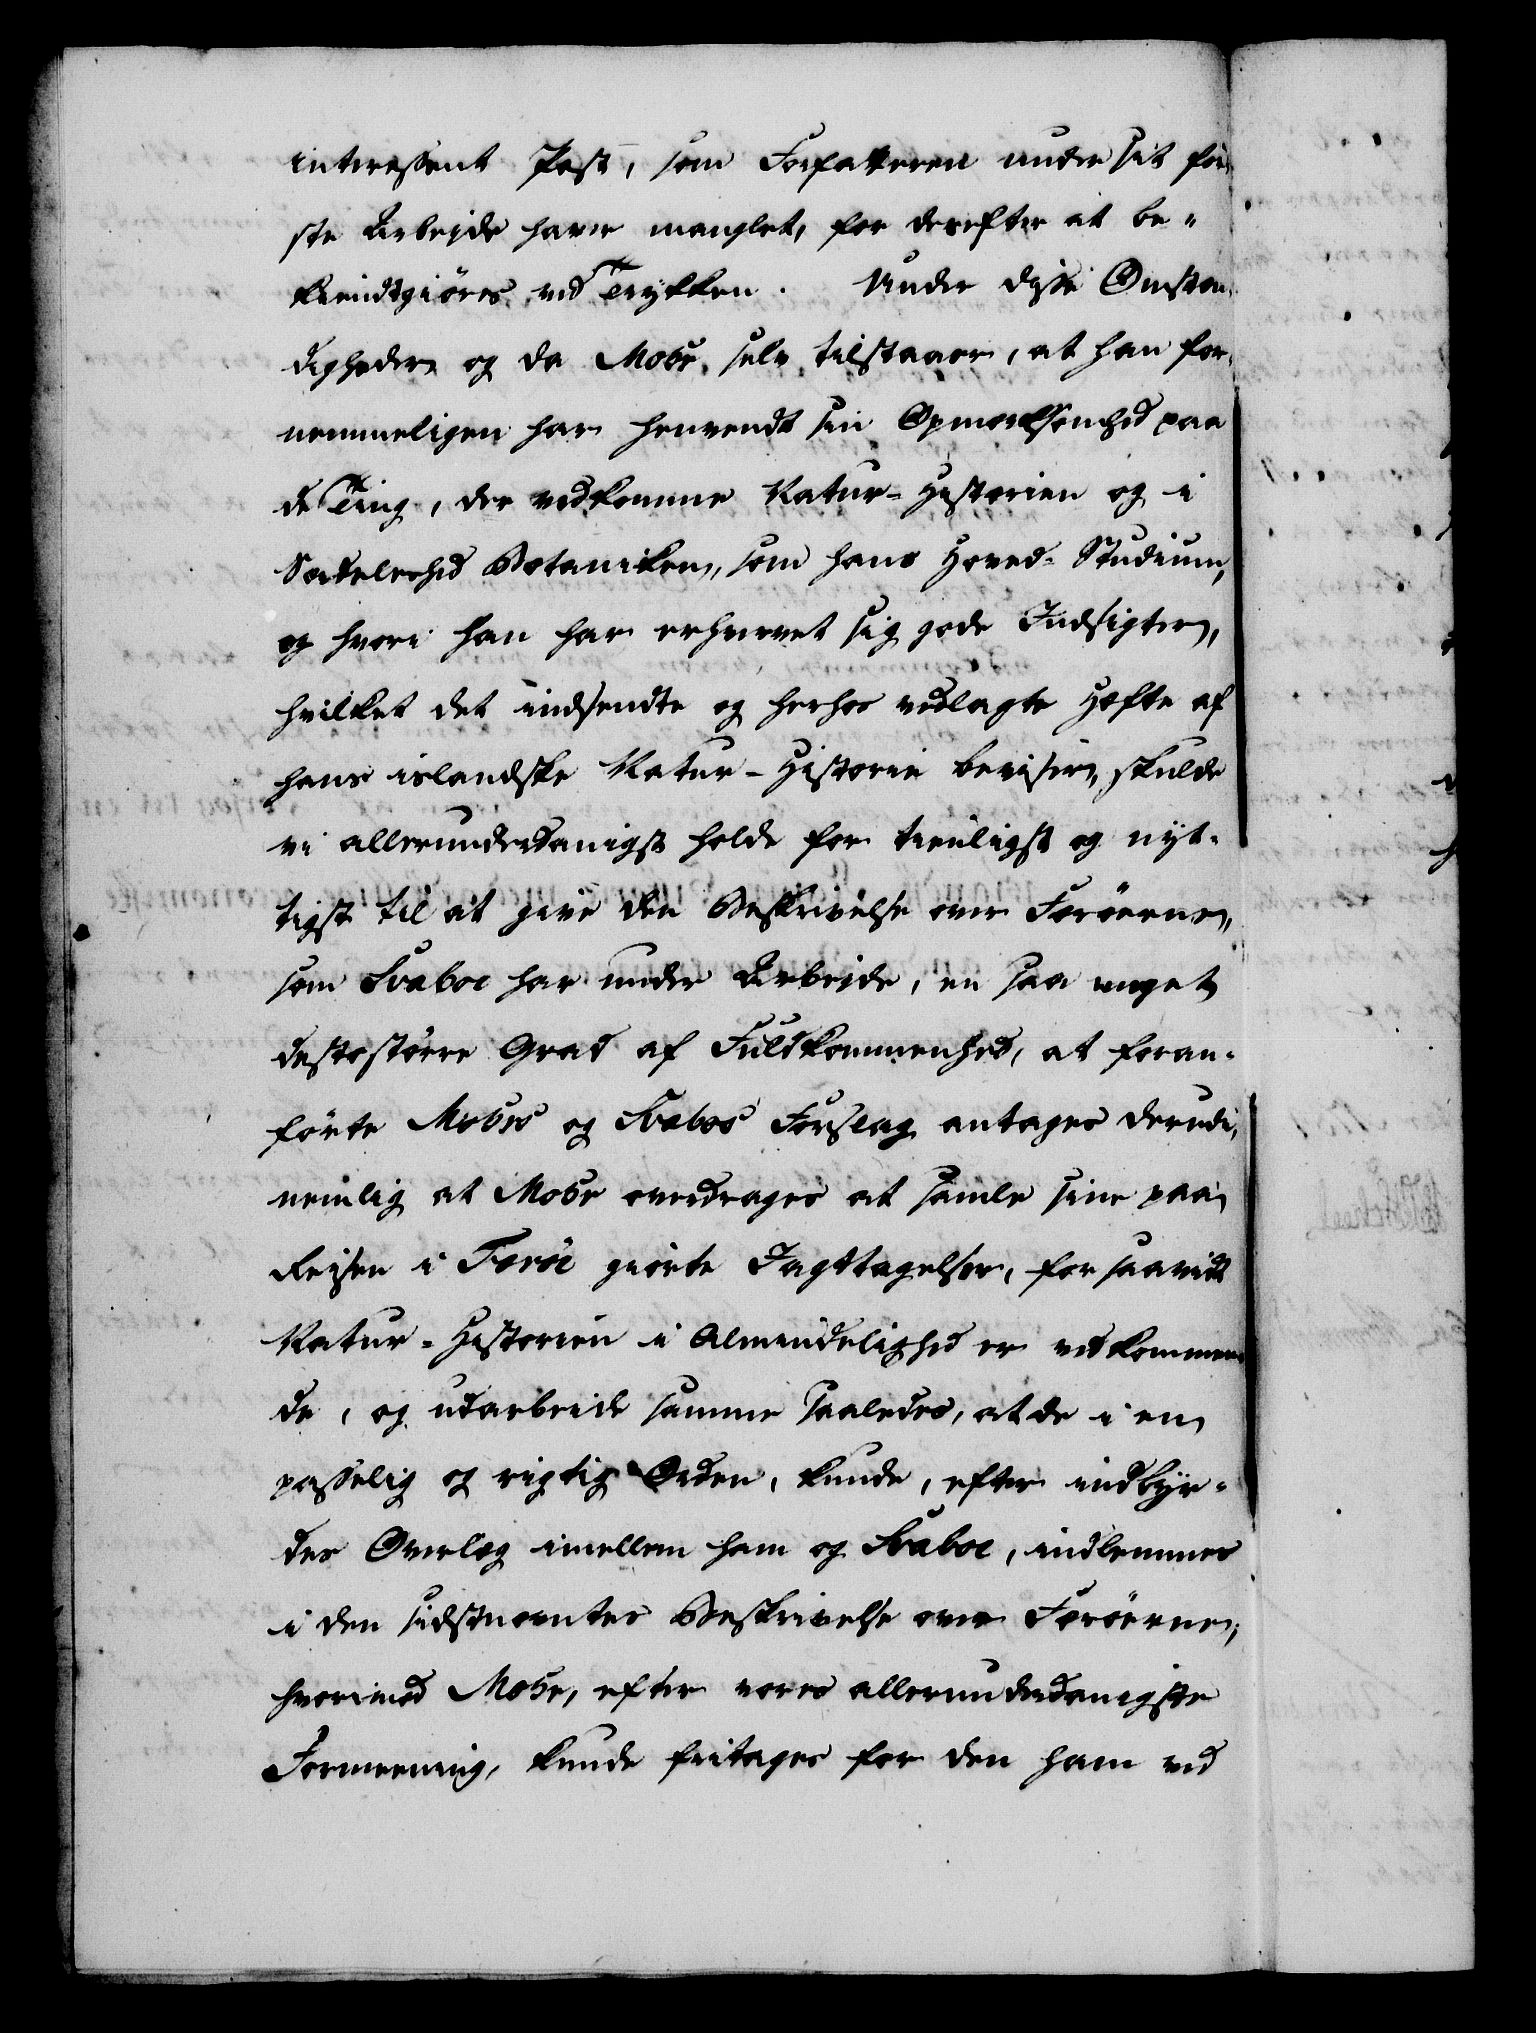 interessent Post, som Forfatteren under sit för
ste Arbejde haver manglet, for derefter at be-
kiendtgiöres ved Trykken. Under disse Omstæn
digheder, og da Mohr selv tilstaaer, at han for-
nemmeligen har henvendt sin Opmærksomhed paa
de Ting, der vedkomme Natur-Historien og i
Særdeleshed Botaniken, som hans Hoved-Studium,
og hvori han har erhvervet sig gode Indsigter,
hvilket det indsendte og herhos vedlagte Hefte af
hans islandske Natur-Historie beviser, skulde
vi allerunderdanigst holde for tienligst og nyt-
tigst til at give den Beskrivelse over Færöerne,
som Svaboe har under Arbejde, en saa meget
destostörre Grad af Fuldkommenhed, at foran-
förte Mohrs og Svabos Forslag antages derudi,
nemlig at Mohr overdrages at samle sine paa
Reisen i Færöe giörte Jagttagelser, for saavidt
Natur-Historien i Almindelighed er vedkommen
de, og udarbeide samme saaledes, at de i en
passelig og rigtig Orden, kunde, efter indbyr-
des Overlæg imellem ham og Svaboe, indlemmes
i den sidstnævntes Beskrivelse over Færöerne,
hvorimod Mohr, efter vores allerunderdanigste
Formeening, kunde fritages for den ham ved